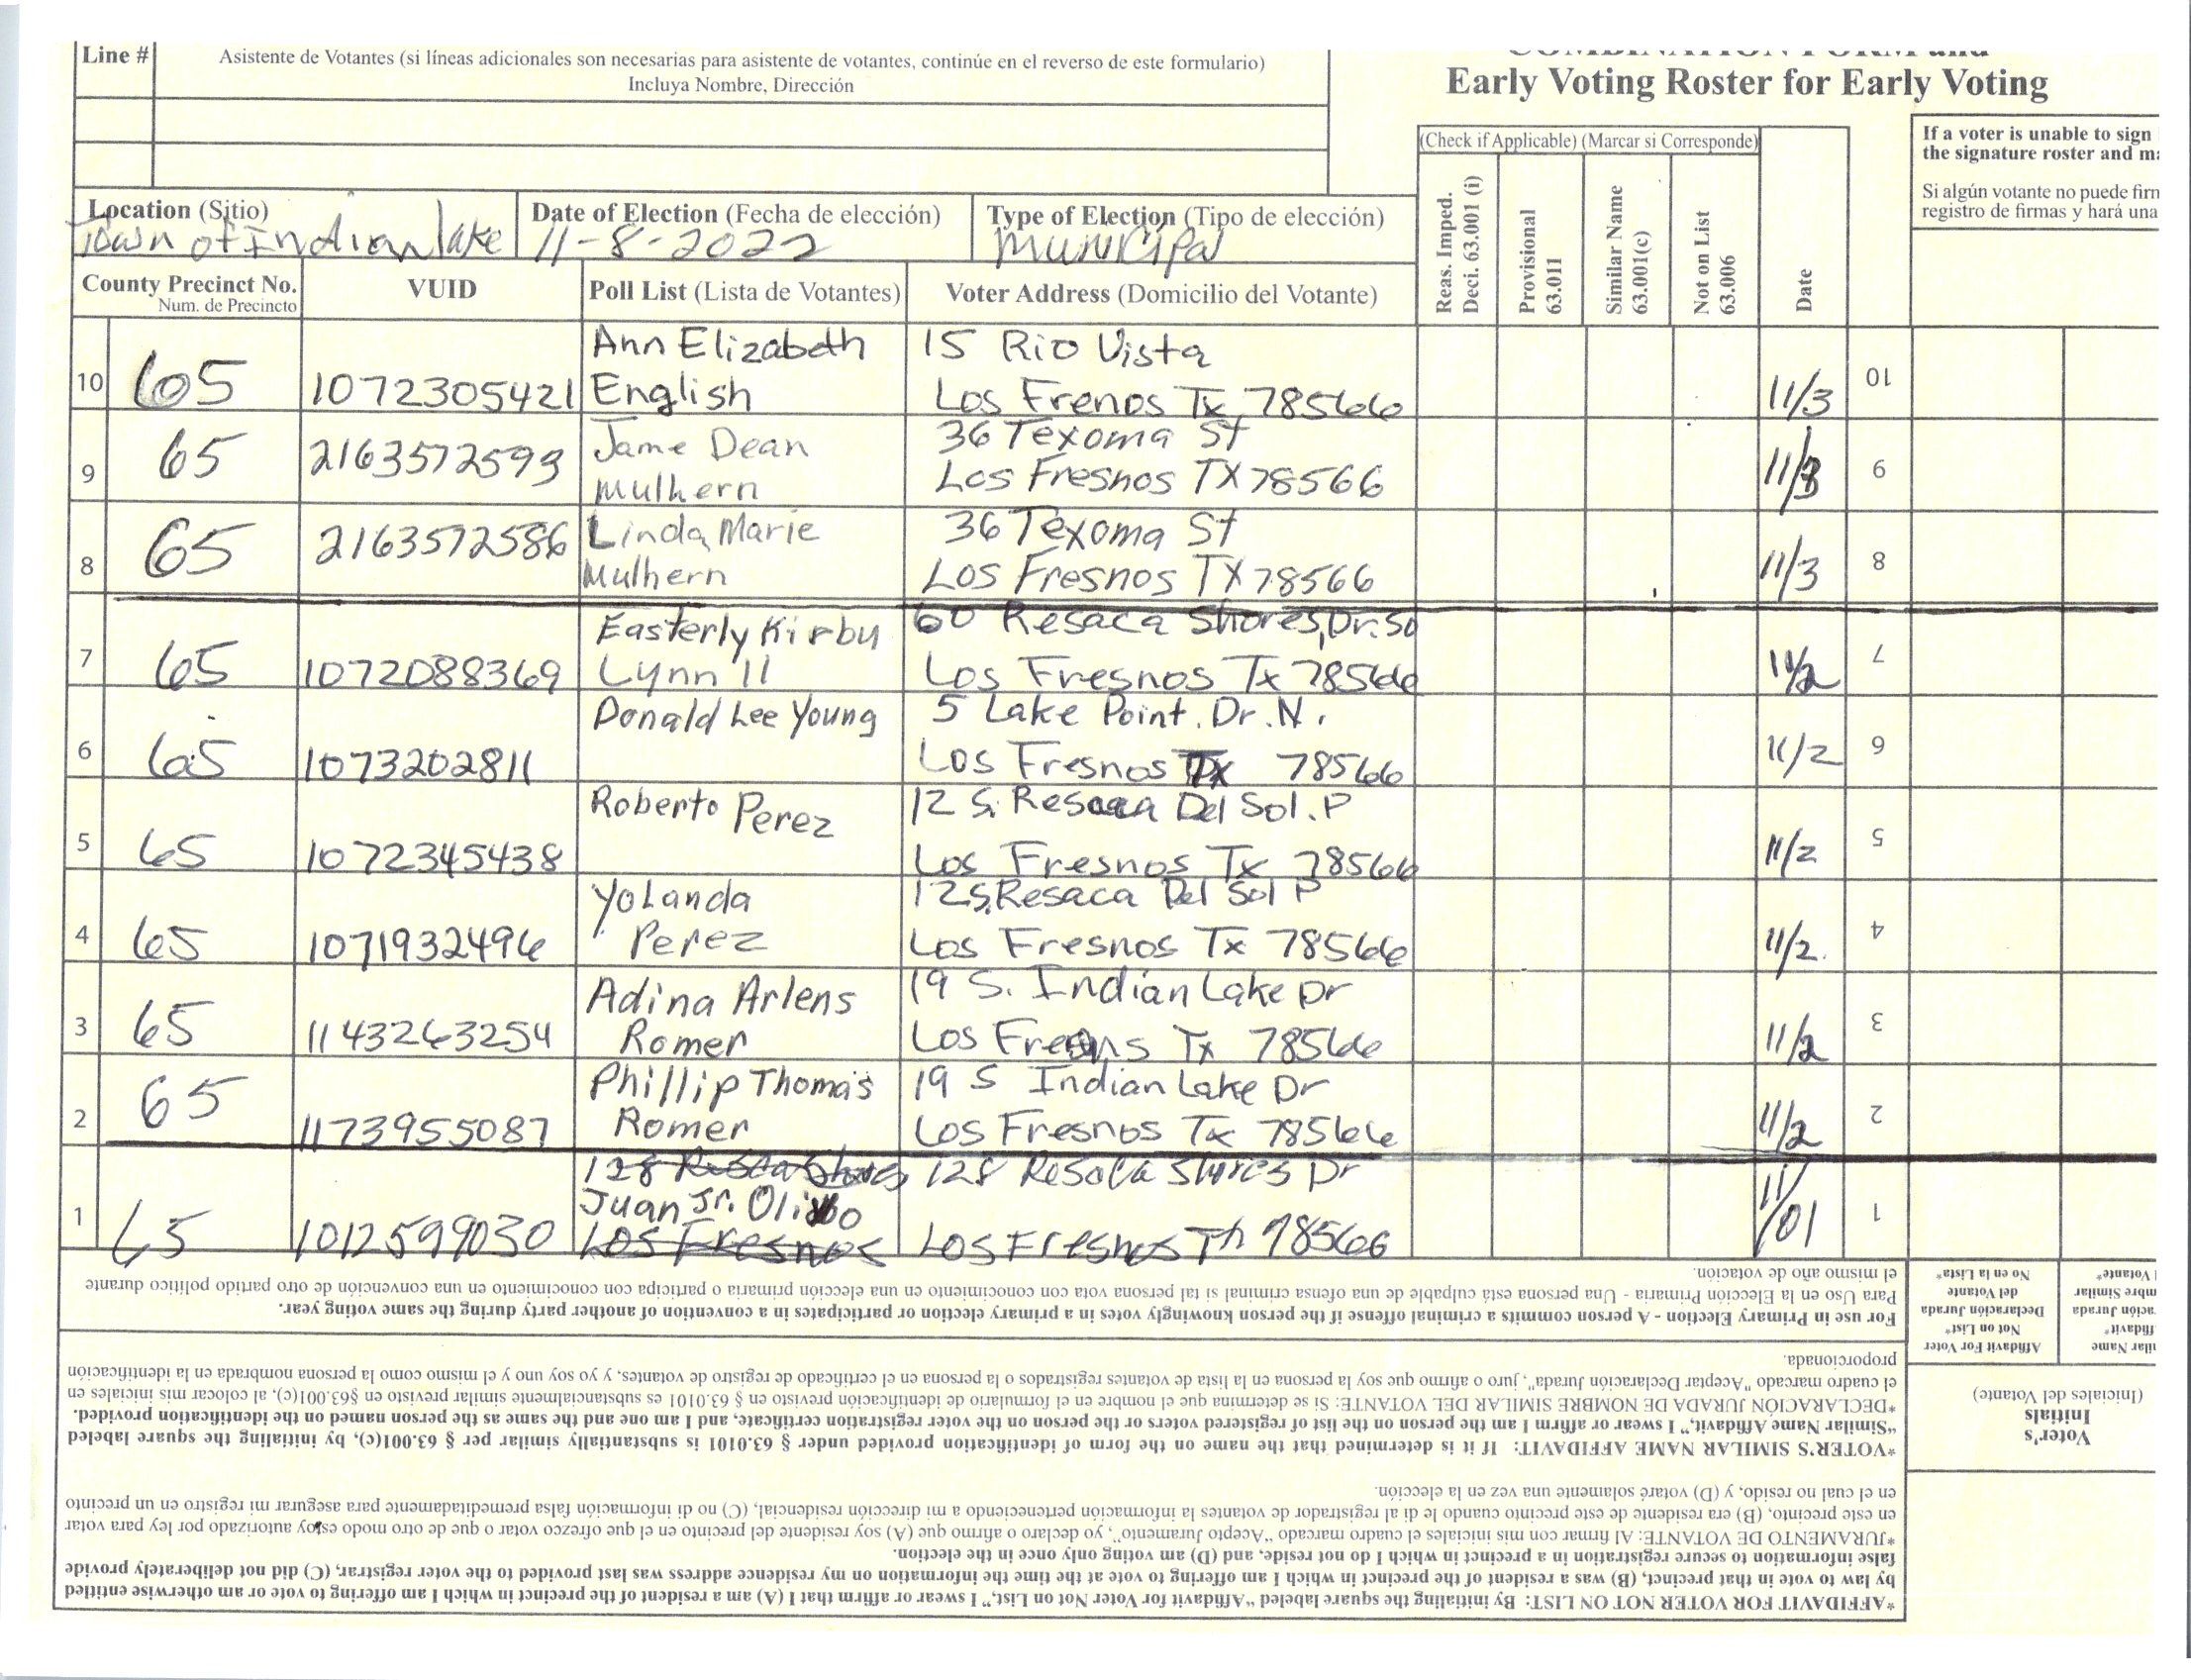 Line #
Asistente de Votantes (si líneas adicionales son necesarias para asistente de votantes, continúe en el reverso de este formulario)
Incluya Nombre, Dirección
COMBINATION FORM and
Early Voting Roster for Early Voting
(Check if Applicable) (Marcar si Corresponde)
Reas. Imped.
Deci. 63.001 (i)
Provisional
63.011
Similar Name
63.001(c)
Not on List
63.006
Date
If a voter is unable to sign
the signature roster and
Si algún votante no puede
registro de firmas y hará una
Location (Sitio)
Town of Indian lake
Date of Election (Fecha de elección)
11-8-2022
Type of Election (Tipo de elección)
Municipal
County Precinct No.
Num. de Precincto
VUID
Poll List (Lista de Votantes)
Voter Address (Domicilio del Votante)
10 65 1072305421 Ann Elizabeth English 15 Rio Vista Los Frenos Tx 78566 11/3 10
9 65 2163572593 Jame Dean Mulhern 36 Texoma St Los Fresnos TX 78566 11/3 9
8 65 2163572586 Linda Marie Mulhern 36 Texoma St Los Fresnos TX 78566 11/3 8
7 65 1072088369 Easterly Kirby Lynn II 60 Resaca Shores, Dr. So Los Fresnos Tx 78566 11/2 7
6 65 1073202811 Donald Lee Young 5 Lake Point. Dr. N. Los Fresnos Tx 78566 11/2 6
5 65 1072345438 Roberto Perez 12 S. Resaca Del Sol. P Los Fresnos Tx 78566 11/2 5
4 65 1071932496 Yolanda Perez 12 S. Resaca Del Sol P Los Fresnos Tx 78566 11/2 4
3 65 1143263254 Adina Arlens Romer 19 S. Indian Lake Dr Los Tx 78566 11/2 3
2 65 1173955087 Phillip Thomas Romer 19 S Indian Lake Dr Los Fresnos Tx 78566 11/2 2
1 65 1012599030 128 Juan Jr. Los Fresnos 128 Resaca Shores Dr Los Fresnos 78566 11/01 1
*AFFIDAVIT FOR VOTER NOT ON LIST: By initialing the square labeled “Affidavit for Voter Not on List,” I swear or affirm that I (A) am a resident of the precinct in which I am offering to vote or am otherwise entitled
by law to vote in that precinct, (B) was a resident of the precinct in which I am offering to vote at the time the information on my residence address was last provided to the voter registrar, (C) did not deliberately provide
false information to secure registration in a precinct in which I do not reside, and (D) am voting only once in the election.
*JURAMENTO DE VOTANTE: Al firmar con mis iniciales el cuadro marcado “Acepto Juramento”, yo declaro o afirmo que (A) soy residente del precinto en el que ofrezco votar o que de otro modo estoy autorizado por ley para votar
en este precinto, (B) era residente de este precinto cuando le di al registrador de votantes la información perteneciendo a mi dirección residencial, (C) no di información falsa premeditadamente para asegurar mi registro en un precinto
en el cual no resido, y (D) votaré solamente una vez en la elección.
*VOTER’S SIMILAR NAME AFFIDAVIT: If it is determined that the name on the form of identification provided under § 63.0101 is substantially similar per § 63.001(c), by initialing the square labeled
“Similar Name Affidavit,” I swear or affirm I am the person on the list of registered voters or the person on the voter registration certificate, and I am one and the same as the person named on the identification provided.
*DECLARACIÓN JURADA DE NOMBRE SIMILAR DEL VOTANTE: Si se determina que el nombre en el formulario de identificación previsto en § 63.0101 es substancialmente similar previsto en §63.001(c), al colocar mis iniciales en
el cuadro marcado “Aceptar Declaración Jurada”, juro o afirmo que soy la persona en la lista de votantes registrados o la persona en el certificado de registro de votantes, y yo soy uno y el mismo como la persona nombrada en la identificación
proporcionada.
For use in Primary Election - A person commits a criminal offense if the person knowingly votes in a primary election or participates in a convention of another party during the same voting year.
Para Uso en la Elección Primaria - Una persona está culpable de una ofensa criminal si tal persona vota con conocimiento en una elección primaria o participa con conocimiento en una convención de otro partido político durante
el mismo año de votación.
Voter’s
Initials
(Iniciales del Votante)
Affidavit For Voter
Not on List*
Declaración Jurada
del Votante
No en la Lista*
Name
Jurada
Similar
Votante*